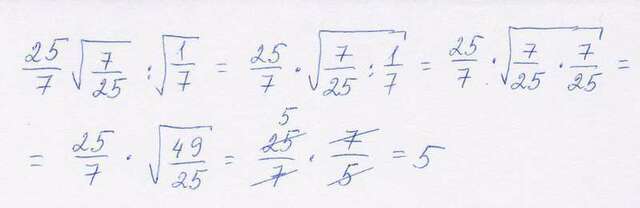 25/7 √(7/25) : √(1/7) = 25/7 · √(7/25 : 1/7) = 25/7 · √(7/25 · 7/25) =
= 25/7 · √(49/25) = 25/7 · 7/5 = 5